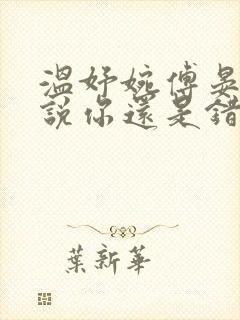 溫妤婉傅晏
說你還是錯
葉新華